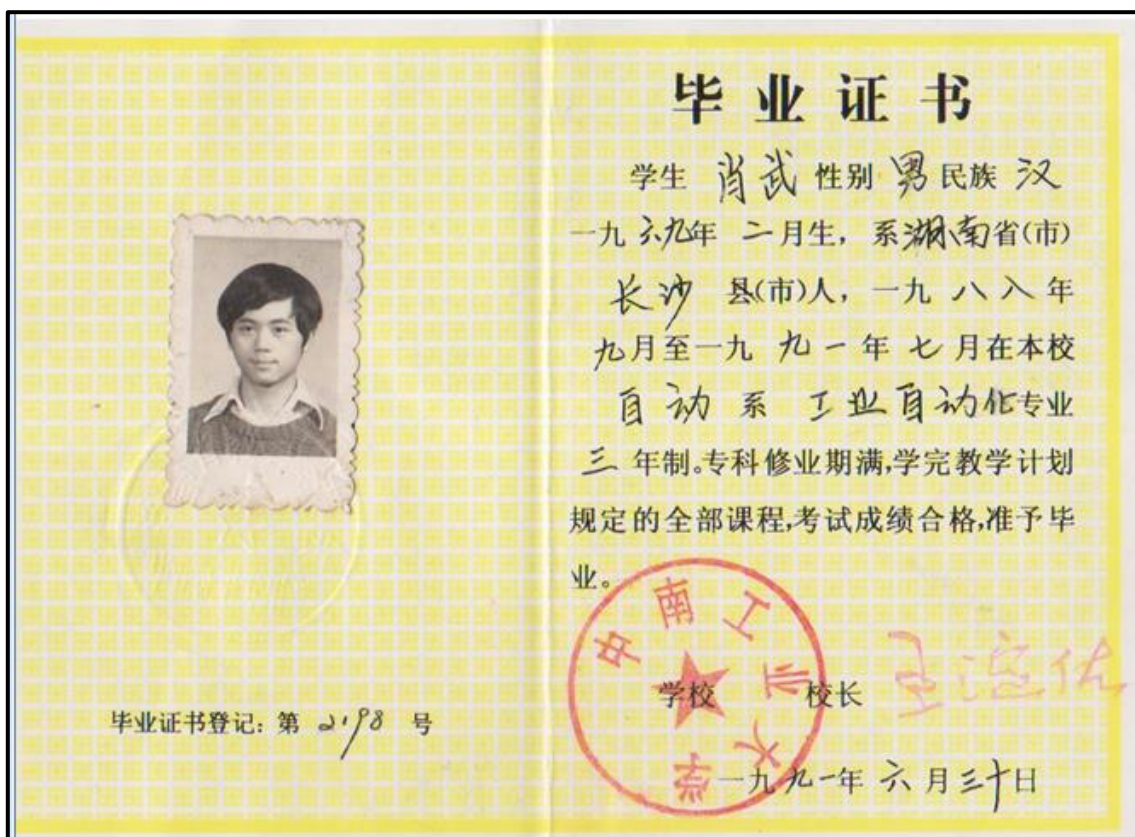 毕业证书
学生 肖武 性别 男 民族 汉
一九六九年 二月生，系湖南省(市)
长沙 县(市)人，一九八八年
九月至一九九一年七月在本校
自动 系 工业自动化专业
三 年制。专科修业期满，学完教学计划
规定的全部课程，考试成绩合格，准予毕
业。
中南工业大学
学校 校长 王淀佐
一九九一年六月三十日
毕业证书登记：第 2198 号